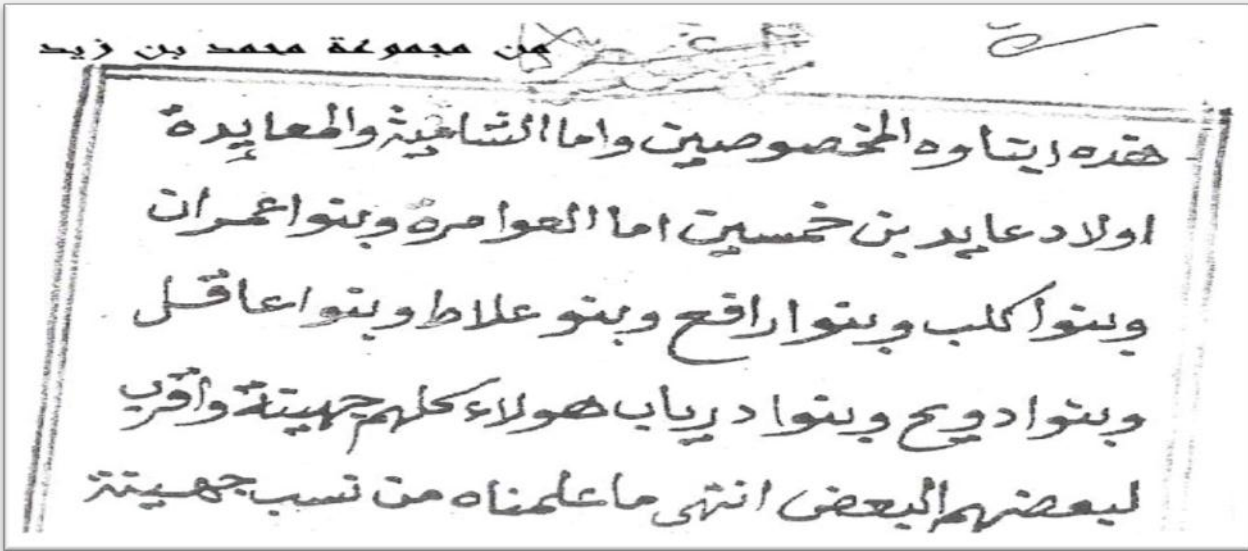 من مجموعة محمد بن زيد
هذه ابناوه المخصوصين واما الشاعية والمعايدة
اولاد عايد بن خمسين اما العوامرة وبنوا عمران
وبنوا كلب وبنوا رافع وبنو علاط وبنوا عاقل
وبنوا دويح وبنوا درياب هولاء كلهم جهينة واقرب
لبعضهم البعض انتهى ما علمناه من نسب جهينة